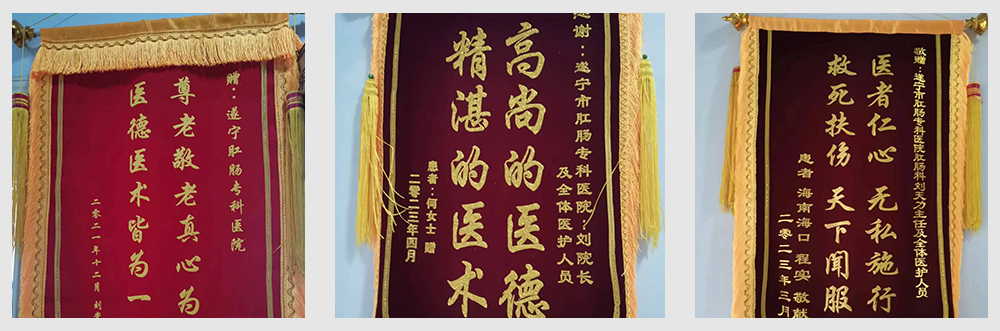 赠：遂宁肛肠专科医院
尊老敬老真心为
医德医术皆为一
二零二一年十二月
感谢：遂宁市肛肠专科医院：刘院长
及全体医护人员
高尚的医德
精湛的医术
患者：何女士 赠
二零二三年四月
敬赠：遂宁市肛肠专科医院肛肠科刘天力主任及全体医护人员
医者仁心 无私施行
救死扶伤 天下闻服
患者 海南海口 程实 敬献
二零二三年三月